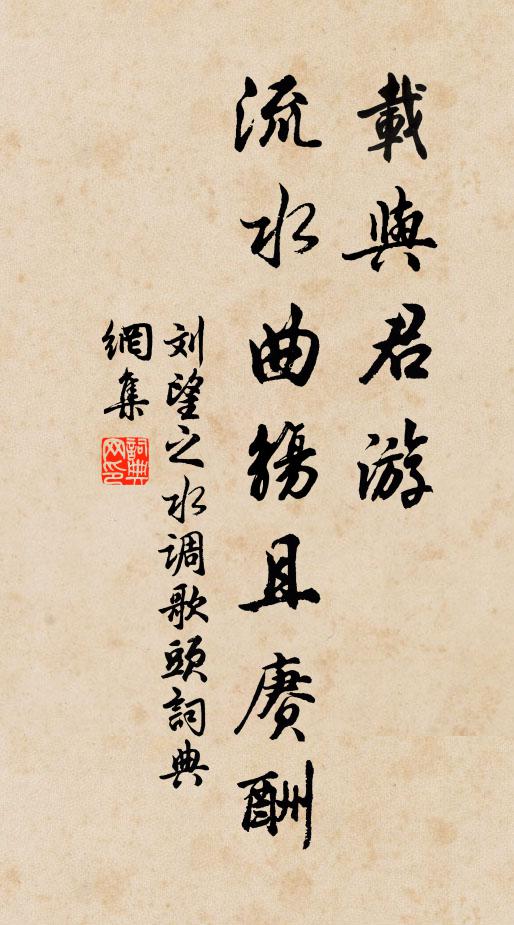 載與君游
流水曲觴且賡酬
刘望之水调歌頭詞典
網集
詞典网印